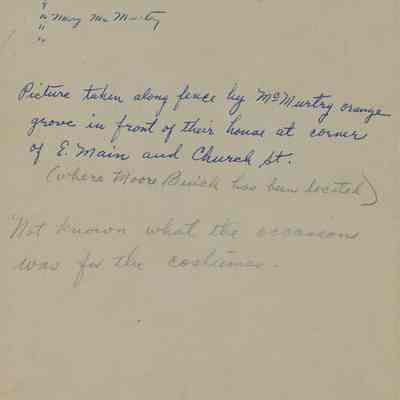 "
" Mary McMurtry
"
"
Picture taken along fence by McMurtry orange
grove in front of their house at corner
of E. Main and Church St.
(where Moore Buick has been located)
Not known what the occasion
was for the costumes.